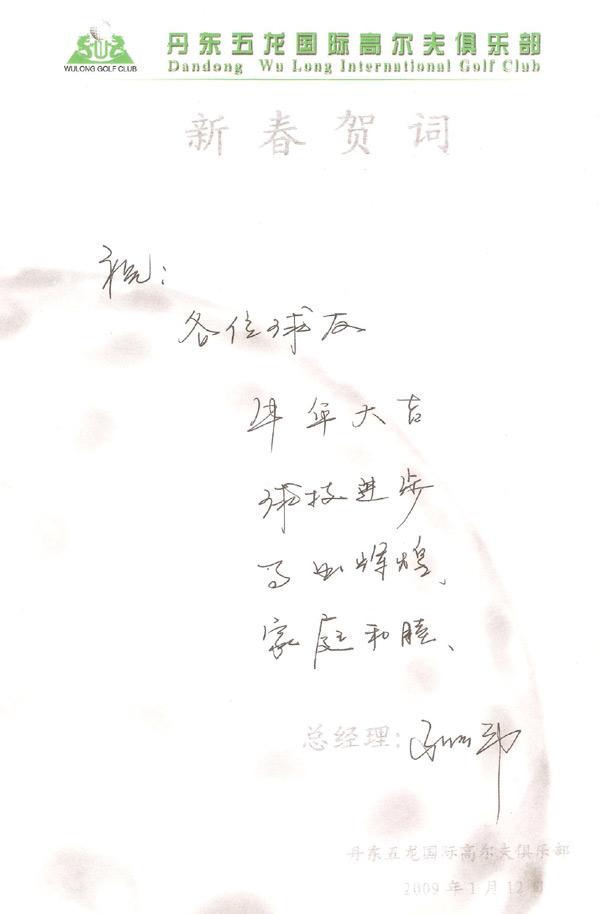 丹东五龙国际高尔夫俱乐部
WULONG GOLF CLUB
Dandong Wu Long International Golf Club
新春贺词
祝：
各位球友
牛年大吉
球技进步
事业辉煌、
家庭和睦、
总经理：
丹东五龙国际高尔夫俱乐部
2009年1月12日